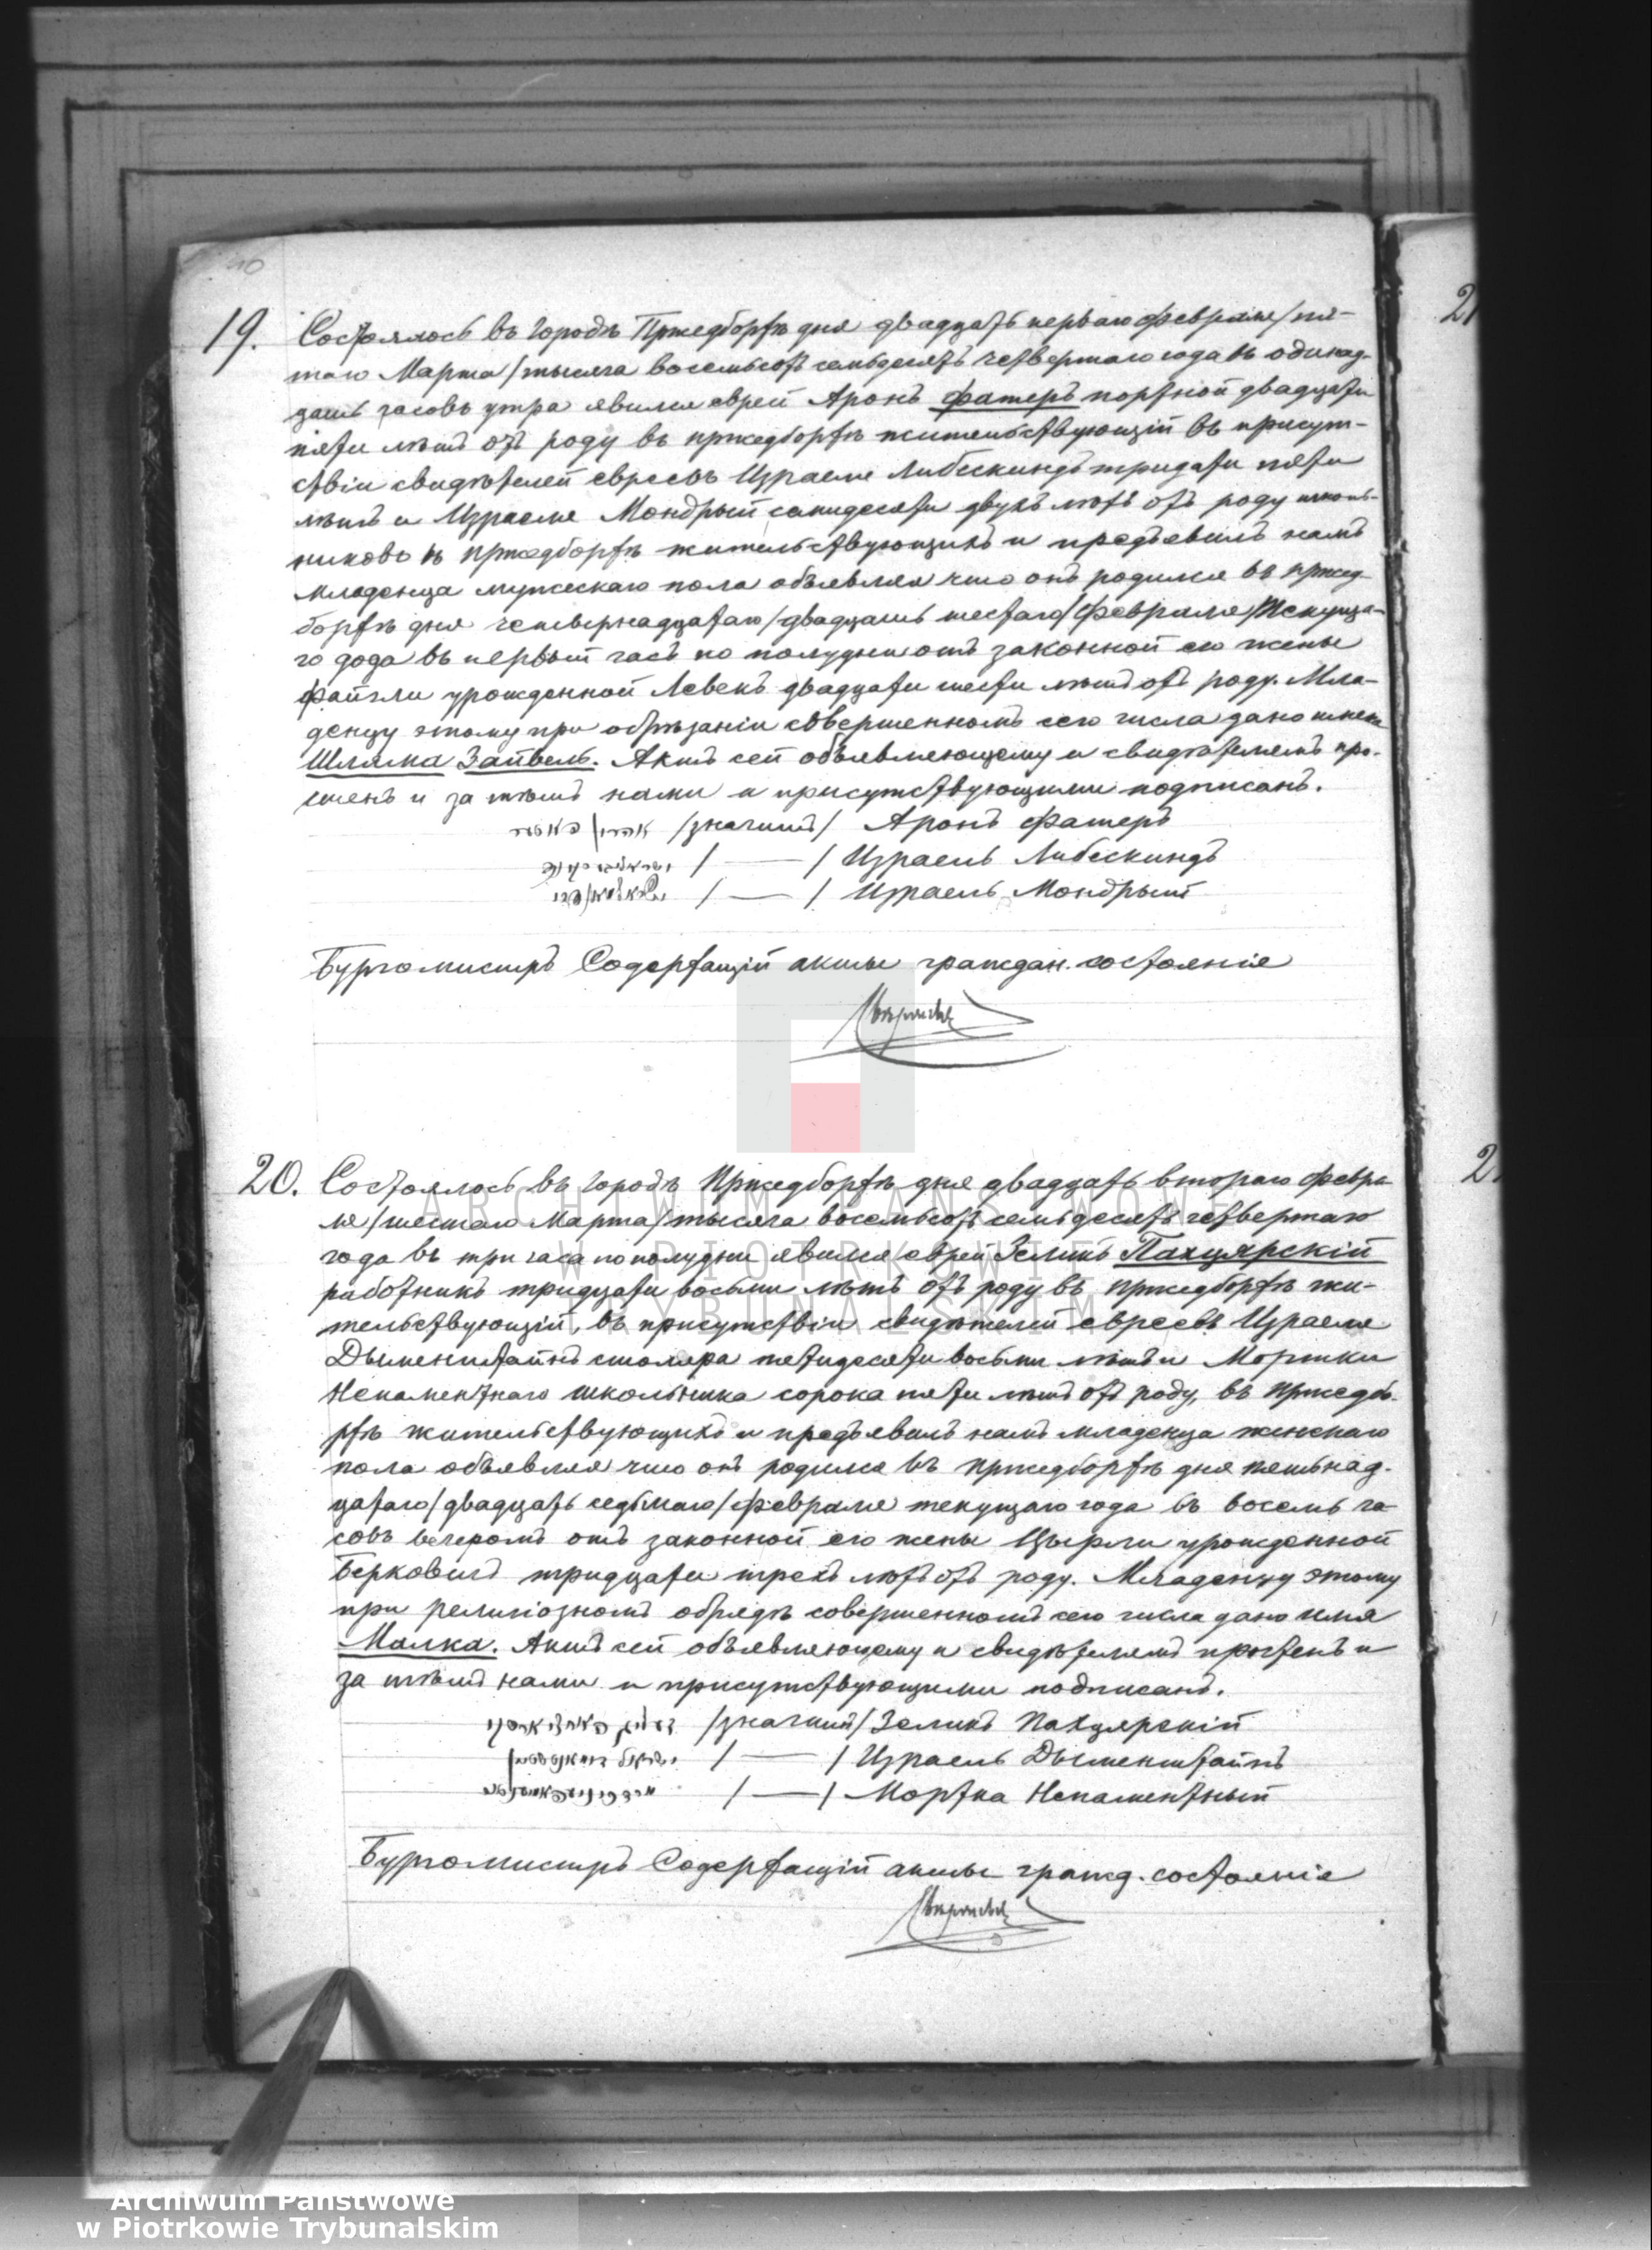 10
19. Состоялось въ городѣ Пржедборѣ дня двадцать перваго Февраля /пя-
таго Марта/ тысяча восемьсотъ семьдесятъ четвертаго года въ одинад-
цать часовъ утра явился еврей Аронъ Фатеръ портной двадцати
пяти лѣтъ отъ роду въ Пржедборѣ жительствующій въ присут-
ствіи свидѣтелей евреевъ Израеля Либескиндъ тридцати пяти
лѣтъ и Израеля Мондрый семидесяти двухъ лѣтъ отъ роду школь-
никовъ въ Пржедборѣ жительствующихъ и предъявилъ намъ
младенца мужескаго пола объявляя что онъ родился въ Пржед-
борѣ дня четвернадцатаго /двадцать шестаго/ Февраля текуща-
го года въ первый часъ по полудни отъ законной его жены
Файгли урожденной Левекъ двадцати шести лѣтъ отъ роду. Мла-
денцу этому при обрѣзаніи совершенномъ сего числа дано имена
Шляма Зайвель. Актъ сей объявляющему и свидѣтелямъ про-
чтенъ и за тѣмъ нами и присутствующими подписанъ.
/значитъ/ Аронъ Фатеръ
/ — / Израель Либескиндъ
/ — / Израель Мондрый
Бургомистръ Содержащій акты граждан. состоянія
20. Состоялось въ городѣ Пржедборѣ дня двадцать втораго Февра
ля /шестаго Марта/ тысяча восемьсотъ семьдесятъ четвертаго
года въ три часа по полудни явился еврей Зелигъ Пахцярскій
работникъ тридцати восьми лѣтъ отъ роду въ Пржедборѣ жи-
тельствующій, въ присутствіи свидѣтелей евреевъ Израеля
Дыменштайнъ столяра пятидесяти восьми лѣтъ и Мортки
Непаментнаго школьника сорока пяти лѣтъ отъ роду, въ Пржедбо-
рѣ жительствующихъ и предъявилъ намъ младенца женскаго
пола объявляя что онъ родился въ Пржедборѣ дня пятьнад-
цатаго /двадцать седьмаго/ Февраля текущаго года въ восемь ча-
совъ вечеромъ отъ законной его жены Цырли урожденной
Берковичъ тридцати трехъ лѣтъ отъ роду. Младенцу этому
при религіозномъ обрядѣ совершенномъ сего числа дано имя
Малка. Актъ сей объявляющему и свидѣтелямъ прочтенъ и
за тѣмъ нами и присутствующими подписанъ.
/значитъ/ Зелигъ Пахцярскій
/ — / Израель Дыменштайнъ
/ — / Мортка Непаментный
Бургомистръ Содержащій акты гражд. состоянія
ARCHIWUM PAŃSTWOWE
W PIOTRKOWIE
TRYBUNALSKIM
Archiwum Państwowe
w Piotrkowie Trybunalskim